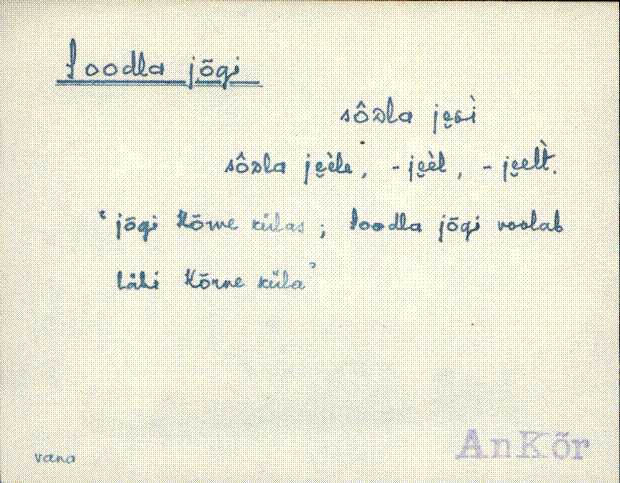 Soodla jõgi
sôᴅla je̮ɢì
sôᴅla je̮èle, -je̮èl, -je̮elt̀.
"jõgi Kõrve külas; Soodla jõgi voolab
läbi Kõrve küla"
vana
AnKõr